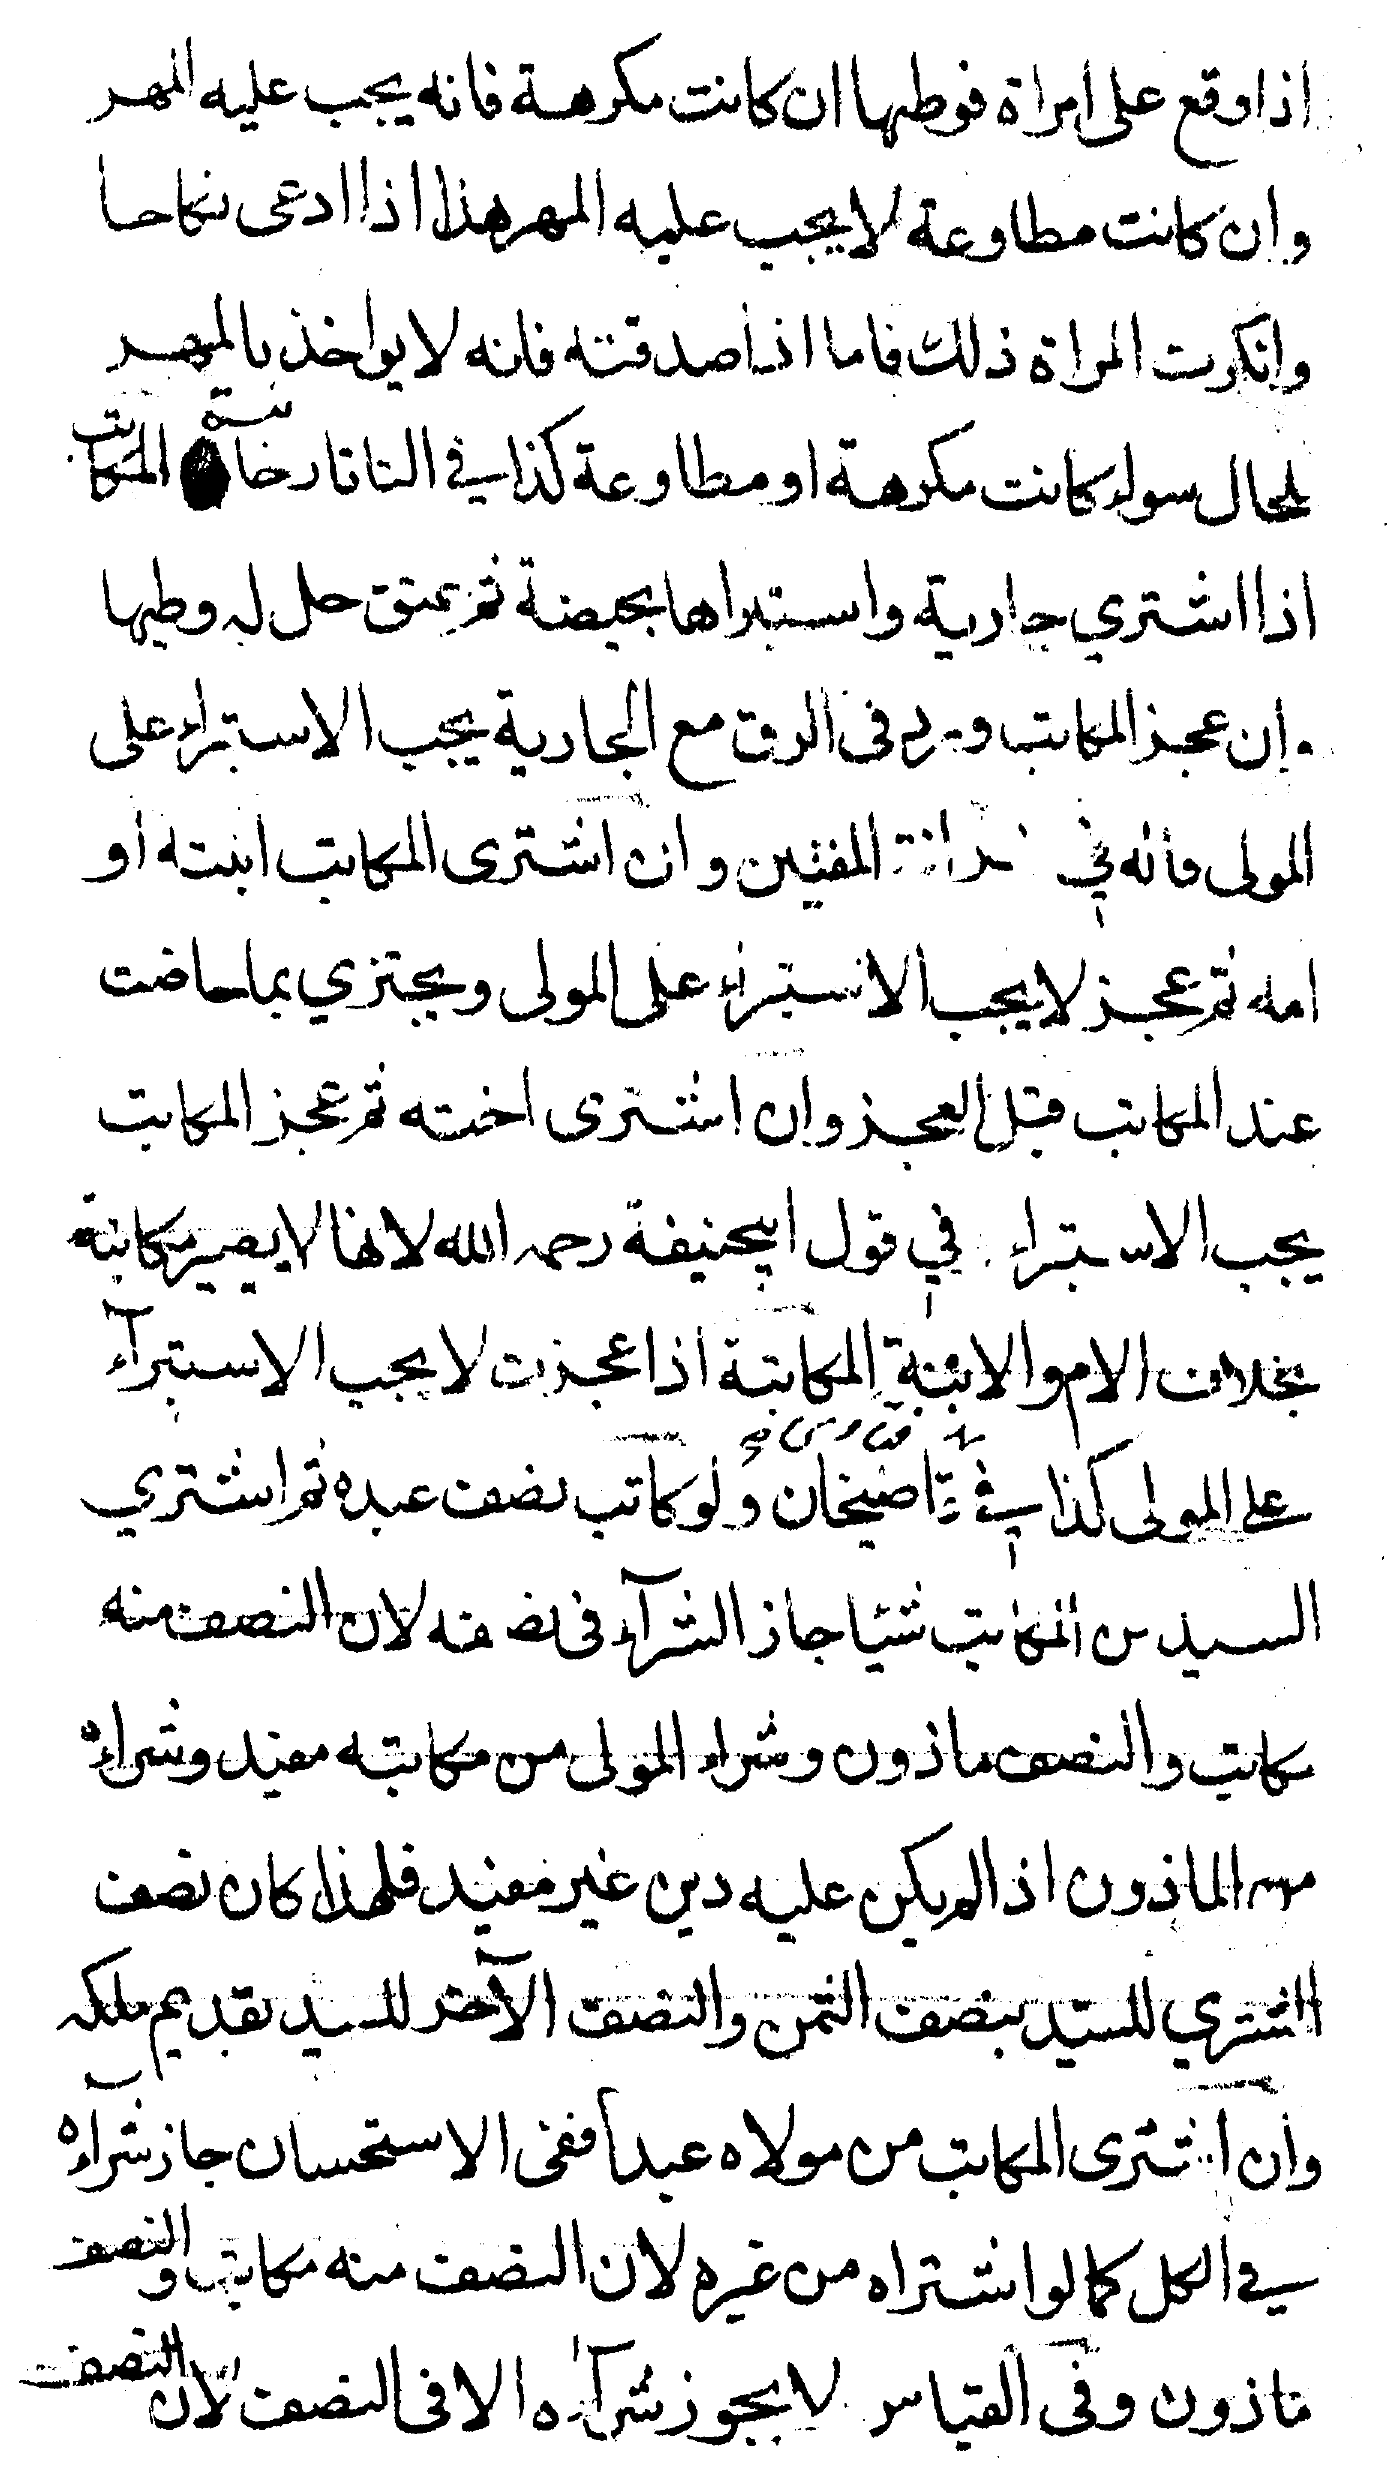 اذا وقع على امراة فوطيها ان كانت مكرهة فانه يجب عليه المهر
وان كانت مطاوعة لا يجب عليه المهر هذا اذا ادعى نكاحا
وانكرت المراة ذلك فاما اذا صدقته فانه لا يواخذ بالمهر
للحال سواء كانت مكرهة او مطاوعة كذا في التاتارخانية المكاتب
اذا اشتري جارية واستبراها بحيضة ثم عتق حل له وطيها
وان عجز المكاتب ورد فى الرق مع الجارية يجب الاستبراء على
المولى قاله في خزانة المفتين وان اشترى المكاتب ابنته او
امه ثم عجز لا يجب الاستبراء على المولى ويجتزي بما حاضت
عند المكاتب قبل العجز وان اشترى اخته ثم عجز المكاتب
يجب الاستبراء في قول ابيحنيفة رحمه الله لانها لا يصير مكاتبة
بخلاف الام والابنة المكاتبة اذا عجزت لا يجب الاستبرآء
على المولى كذا في قاضيخان ولو كاتب نصف عبده ثم اشتري
السيد من المكاتب شيا جاز الشرآء فى نصفه لان النصف منه
مكاتب والنصف ماذون وشراء المولى من مكاتبه مفيد وشراءه
من الماذون اذا لم يكن عليه دين غير مفيد فلهذا كان نصف
المشتري للسيد بنصف الثمن والنصف الآخر للسيد بقديم ملكه
وان اشترى المكاتب من مولاه عبدا ففى الاستحسان جاز شرآءه
في الكل كما لو اشتراه من غيره لان النصف منه مكاتب والنصف
ماذون وفى القياس لا يجوز شرآءه الا فى النصف لان النصف